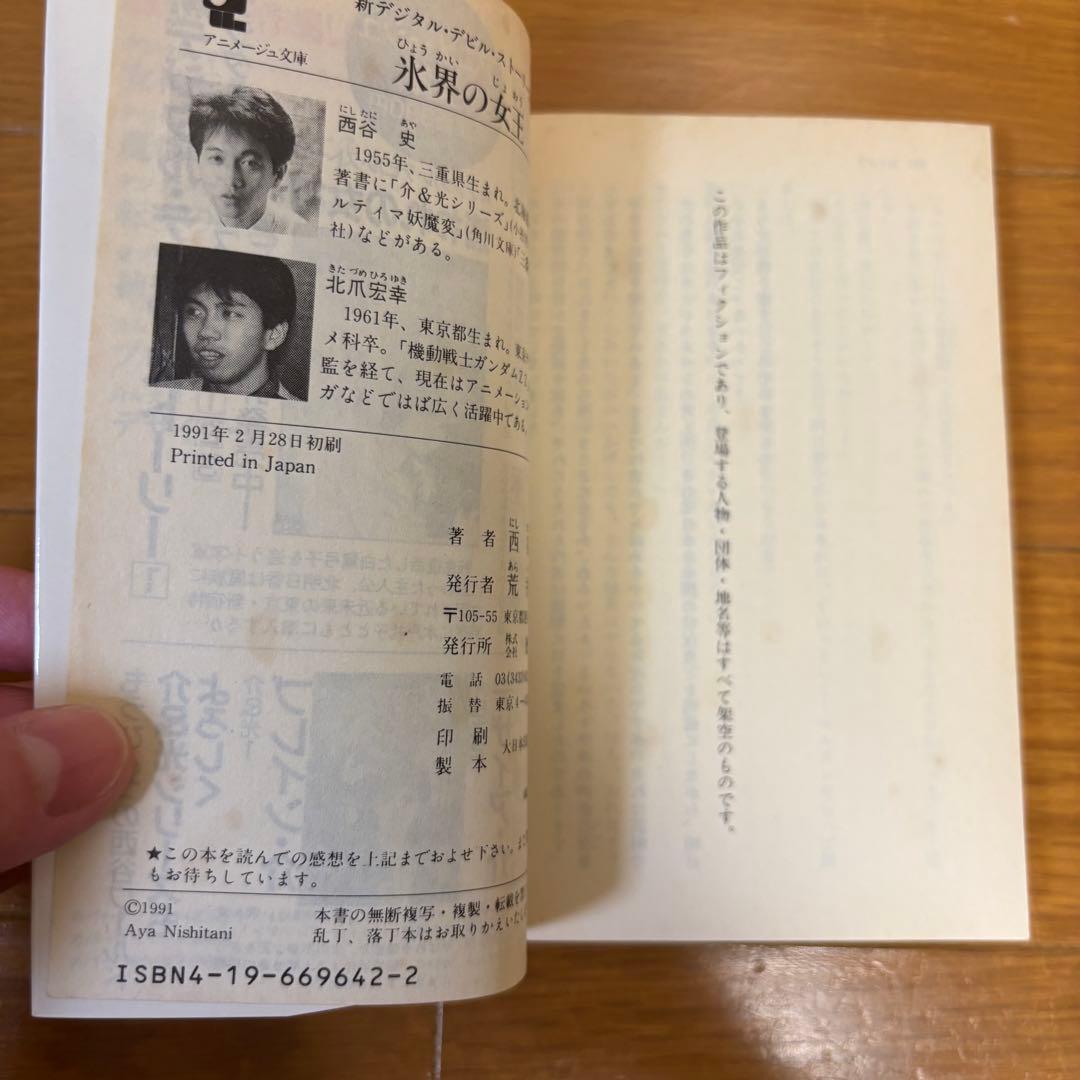 新デジタル・デビル・ストーリ
アニメージュ文庫
ひょうかい じょおう
氷界の女王
にしたに あや
西谷 史
1955年、三重県生まれ。北海
著書に「介&光シリーズ」(小
ルティマ妖魔変」(角川文庫)「三
社)などがある。
きたづめひろゆき
北爪宏幸
1961年、東京都生まれ。東京
メ科卒。「機動戦士ガンダムZZ
監を経て、現在はアニメーション
ガなどではば広く活躍中である。
1991年2月28日初刷
Printed in Japan
にし
著者 西
あら
発行者 荒
〒105-55 東京都
発行所 株式会社
電話 03(343
振替 東京4-4
印刷
製本
大日本
★この本を読んでの感想を上記までおよせ下さい。ま
もお待ちしています。
©1991
Aya Nishitani
本書の無断複写・複製・転載を
乱丁、落丁本はお取りかえいたし
ISBN4-19-669642-2
この作品はフィクションであり、登場する人物・団体・地名等はすべて架空のものです。